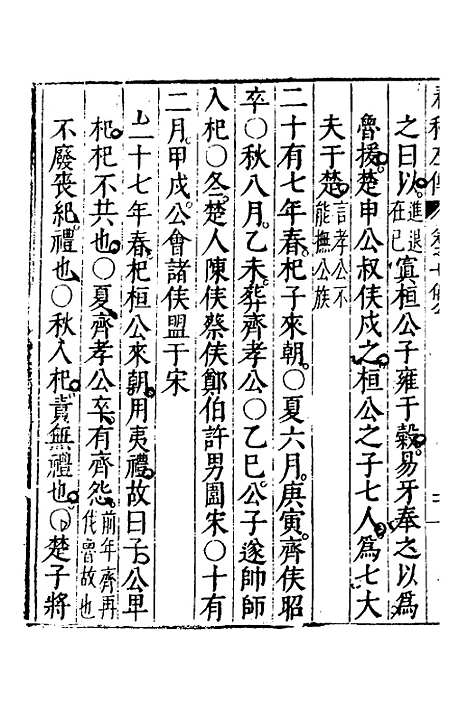 之曰以進退在己寘桓公子雍于穀易牙奉之以爲
魯援楚申公叔侯戍之桓公之子七人爲七大
夫于楚言孝公不能撫公族
二十有七年春杞子來朝○夏六月庚寅齊侯昭
卒○秋八月乙未葬齊孝公○乙巳公子遂帥師
入杞○冬楚人陳侯蔡侯鄭伯許男圍宋○十有
二月甲戌公會諸侯盟于宋
二十七年春杞桓公來朝用夷禮故曰子公卑
杞杞不共也○夏齊孝公卒有齊怨前年齊再伐魯故也
不廢喪紀禮也○秋入杞責無禮也○楚子將